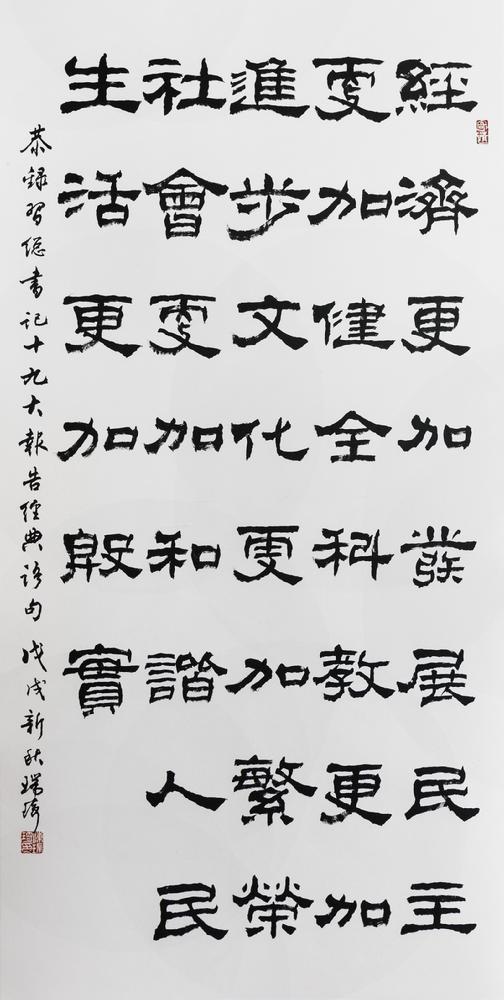 經濟更加發展民主
更加健全科教更加
進步文化更加繁榮
社會更加和諧人民
生活更加殷實
恭録習總書记十九大報告經典語句 戊戌新秋瑞琦